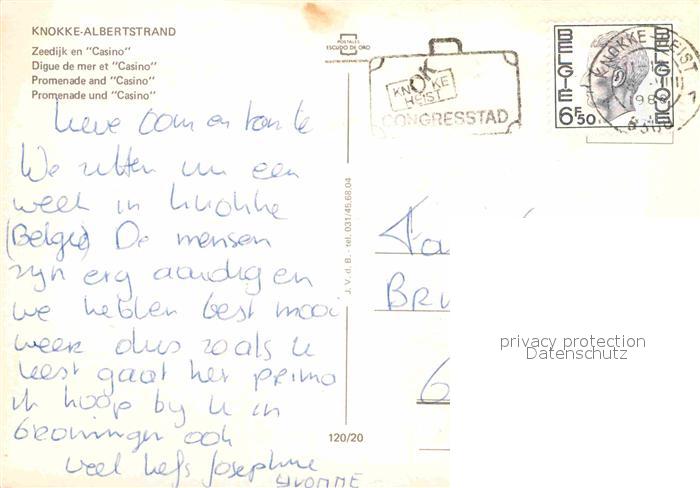 KNOKKE-ALBERTSTRAND
Zeedijk en "Casino"
Digue de mer et "Casino"
Promenade and "Casino"
Promenade und "Casino"
POSTALES
ESCUDO DE ORO
OK
KNOKKE
HEIST
CONGRESSTAD
KNOKKE-HEIST
BELGIE
BELGIQUE
6F50
Lieve oom en tante
We zitten nu een
week in Knokke
(België) De mensen
zijn erg aardig en
we hebben best mooi
weer dus zoals u
leest gaat het prima
ik hoop bij u in
Groningen ook
veel liefs Josephine
YVONNE
J.V.d.B. - tel. 031/45.68.04
120/20
Fa
BRU
6
privacy protection
Datenschutz